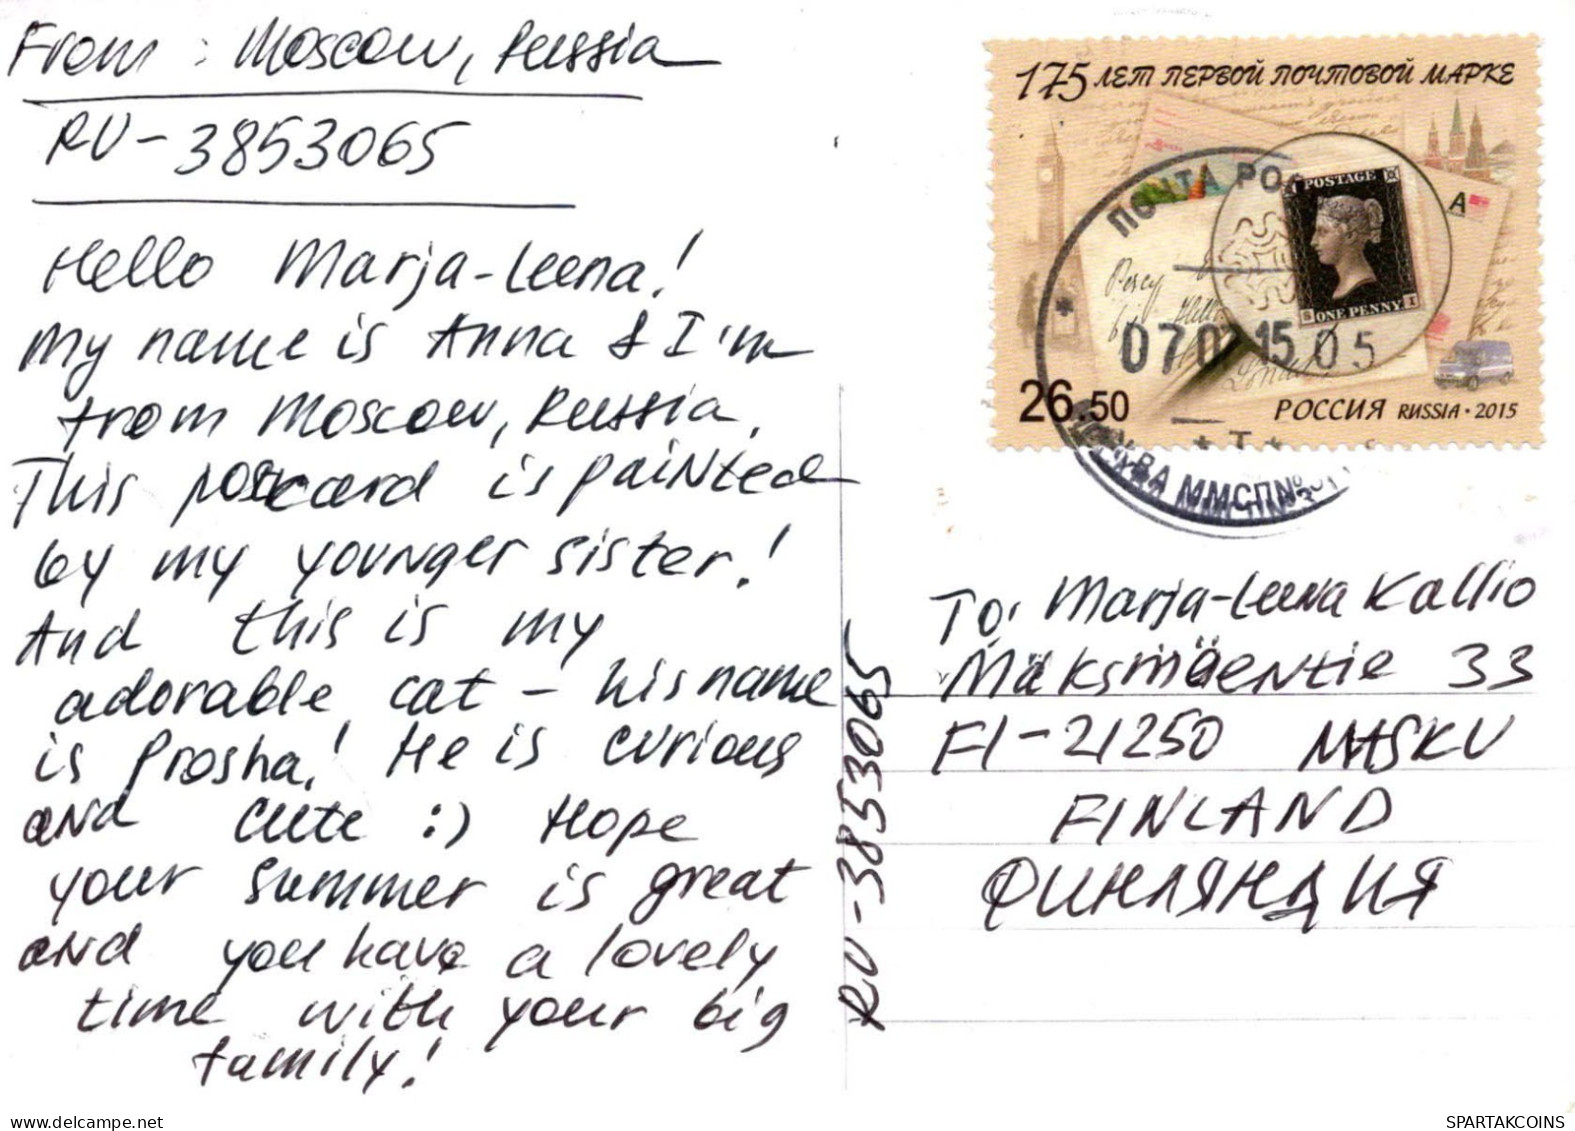 From: Moscow, Russia
RU-3853065
Hello Marja-Leena!
My name is Anna & I'm
from Moscow, Russia.
This postcard is painted
by my younger sister!
And this is my
adorable cat – his name
is Prosha! He is curious
and cute :) Hope
your summer is great
and you have a lovely
time with your big
family!
RU-3853065
175 ЛЕТ ПЕРВОЙ ПОЧТОВОЙ МАРКЕ
ПОЧТА РОС
POSTAGE
A
Percy
S ONE PENNY I
0707 15 05
London
26.50
РОССИЯ RUSSIA · 2015
* Т *
МОСКВА ММСПN°
To: Marja-Leena Kallio
Mäksmäentie 33
FI-21250 MASKU
FINLAND
ФИНЛЯНДИЯ
my-website.com
SPARTAKCOINS